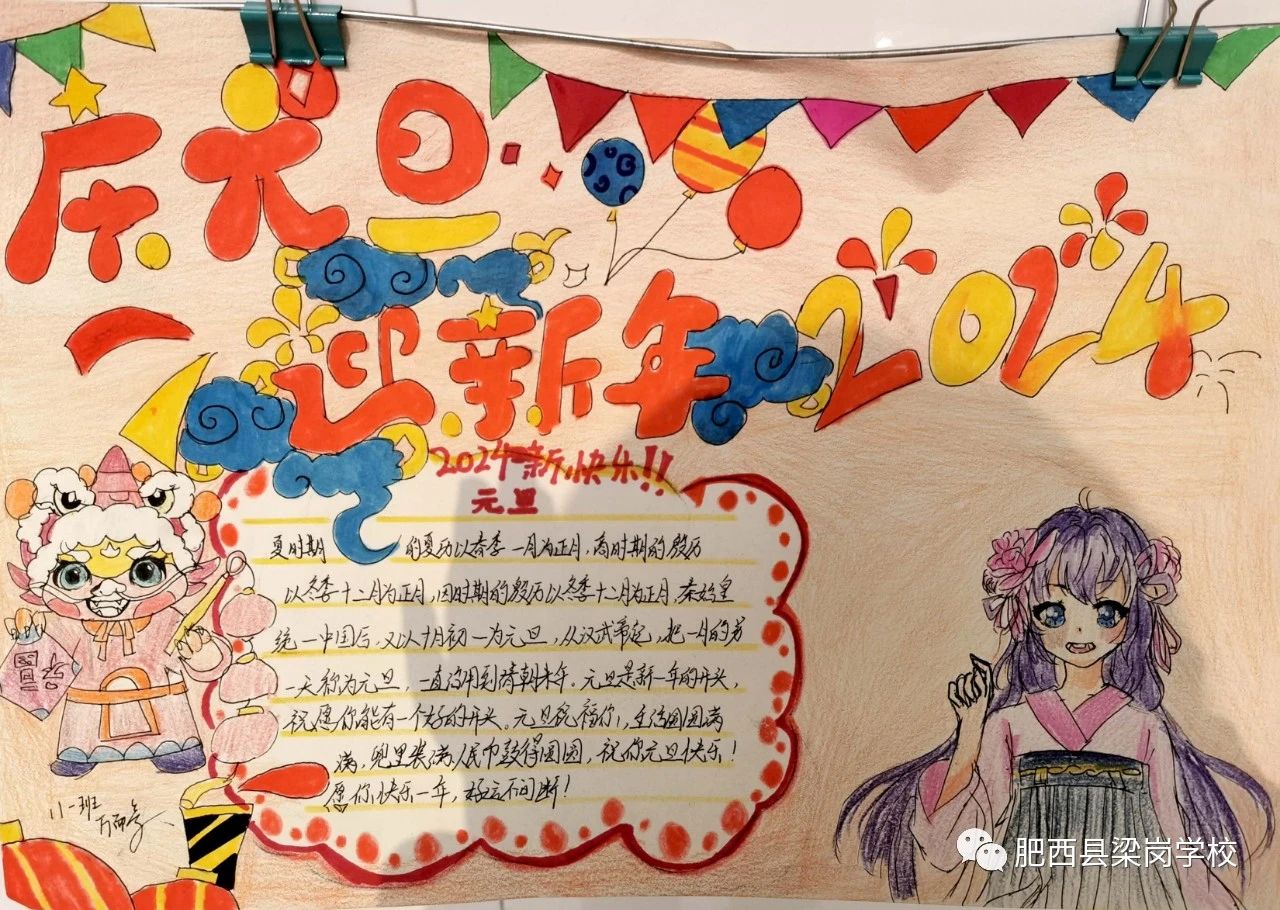 庆元旦
一迎新年2024
2024新快乐!!
元旦
夏时期 的夏历以春季一月为正月,商时期的殷历
以冬季十二月为正月,因时期的殷历以冬季十二月为正月,秦始皇
统一中国后,又以十月初一为元旦,从汉武帝起,把一月的第
一天称为元旦,一直沿用到清朝末年.元旦是新一年的开头,
祝愿你能有一个好的开头。元旦祝福你,生活圆圆满
满,兜里装满人民币鼓得圆圆,祝你元旦快乐!
愿你快乐一年,好运不间断!
11一班
肥西县梁岗学校